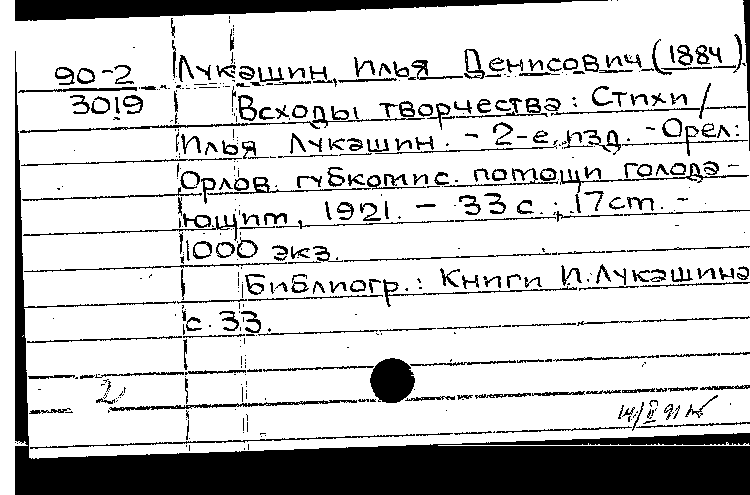 90-2
3019
Лукашин, Илья Денисович (1884)
Всходы творчества: Стихи /
Илья Лукашин. - 2-е изд. - Орел:
Орлов. губкомис. помощи голода-
ющим, 1921. - 33 с.; 17 см. -
1000 экз.
Библиогр.: Книги И. Лукашина
с. 33.
2
14/II 91